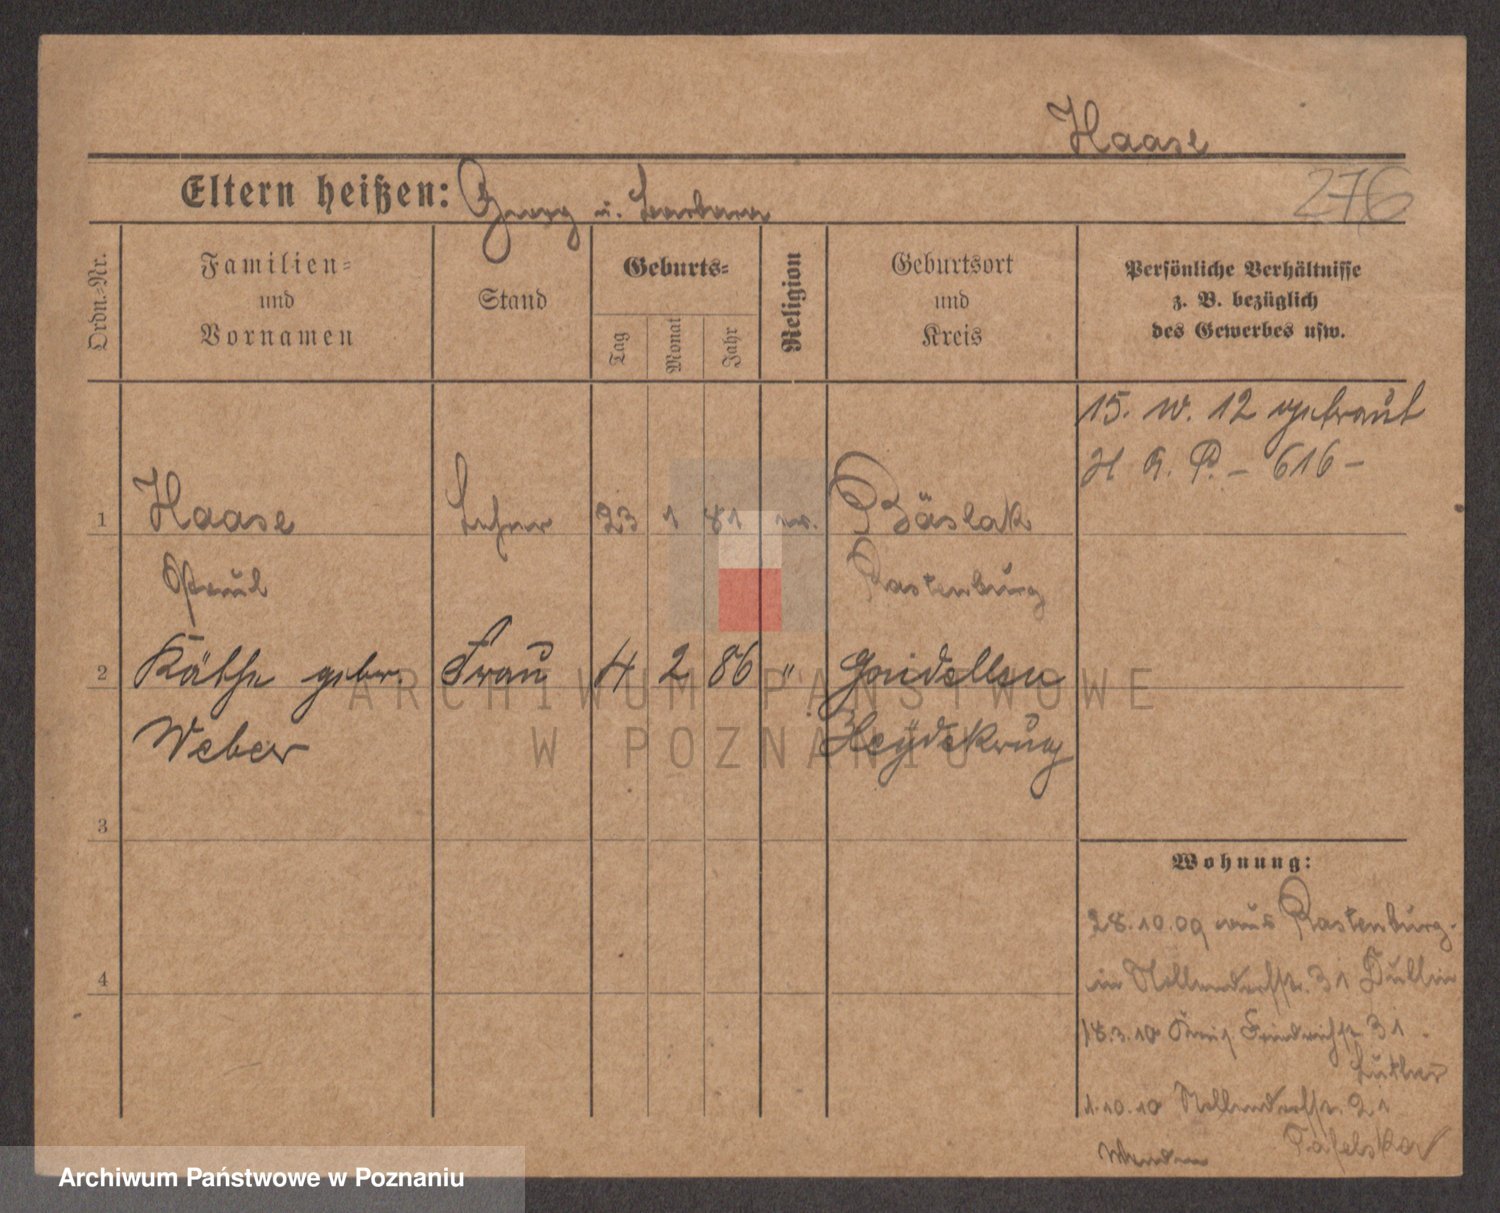 Haase
Eltern heißen: Georg u. Barbara
276
Ordn.-Nr.
Familien-
und
Vornamen
Stand
Geburts-
Tag
Monat
Jahr
Religion
Geburtsort
und
Kreis
Persönliche Verhältnisse
z. B. bezüglich
des Gewerbes usw.
15. IV. 12 getraut
H R. P. – 616 –
1 Haase Lehrer 23 1 81 ev. Bäslak
Paul Rastenburg
2 Käthe gebr. Frau 4 2 86 " Gnidellen
Weber Heydekrug
3
Wohnung:
28.10.09 aus Rastenburg.
4
in Nollendorfstr. 31
18.3.10 Friedrichstr. 31
Luther
1.10.10 Nollendorfstr. 21
Wenden Tafelska
ARCHIWUM PAŃSTWOWE
W POZNANIU
Archiwum Państwowe w Poznaniu